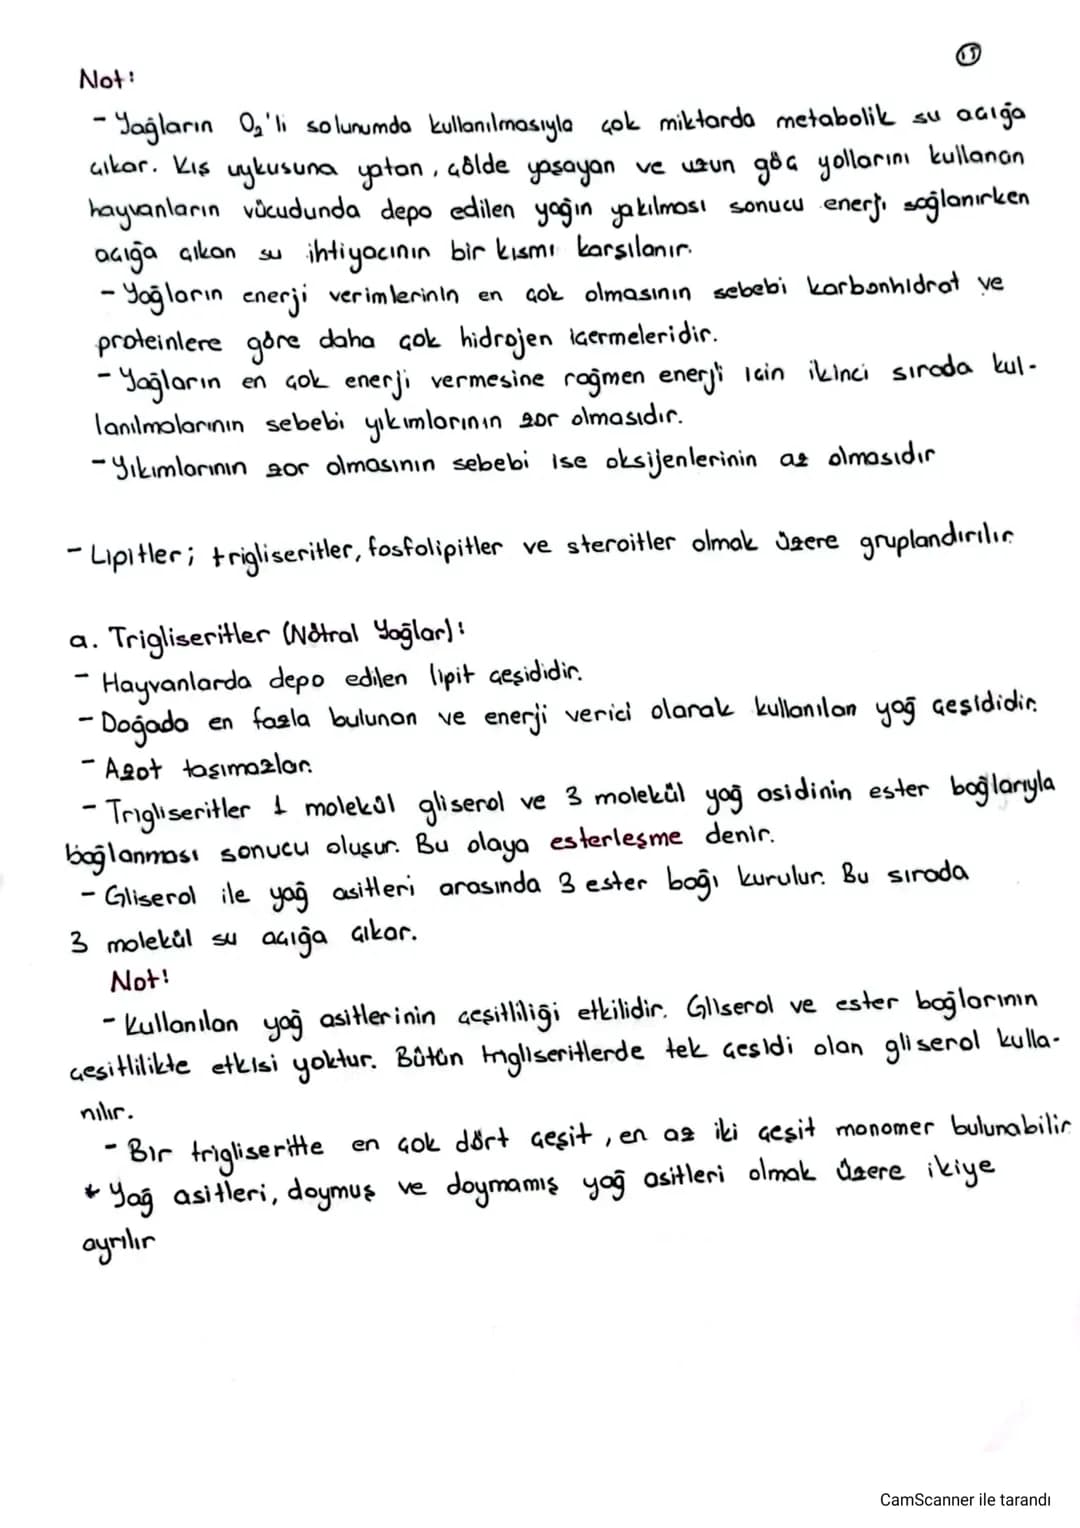 15
Not:
- Yağların O₂'li solunumda kullanılmasıyla çok miktarda metabolik su açığa
çıkar. Kış uykusuna yatan, çölde yaşayan ve uzun göç yollarını kullanan
hayvanların vücudunda depo edilen yağın yakılması sonucu enerji sağlanırken
açığa çıkan su ihtiyacının bir kısmı karşılanır.
- Yağların enerji verimlerinin en çok olmasının sebebi karbonhidrat ve
proteinlere göre daha çok hidrojen içermeleridir.
- Yağların en çok enerji vermesine rağmen enerji için ikinci sırada kul-
lanılmalarının sebebi yıkımlarının zor olmasıdır.
- Yıkımlarının zor olmasının sebebi ise oksijenlerinin az olmasıdır
- Lipitler; trigliseritler, fosfolipitler ve steroitler olmak üzere gruplandırılır.
a. Trigliseritler (Nötral Yağlar):
- Hayvanlarda depo edilen lipit çeşididir.
- Doğada en fazla bulunan ve enerji verici olarak kullanılan yağ çeşididir.
- Azot taşımazlar.
- Trigliseritler 1 molekül gliserol ve 3 molekül yağ asidinin ester bağlarıyla
bağlanması sonucu oluşur. Bu olaya esterleşme denir.
- Gliserol ile yağ asitleri arasında 3 ester bağı kurulur. Bu sırada
3 molekül su açığa çıkar.
Not!
- Kullanılan yağ asitlerinin çeşitliliği etkilidir. Gliserol ve ester bağlarının
çeşitlilikte etkisi yoktur. Bütün trigliseritlerde tek çeşidi olan gliserol kulla-
nılır.
- Bir trigliseritte en çok dört çeşit, en az iki çeşit monomer bulunabilir
* Yağ asitleri, doymuş ve doymamış yağ asitleri olmak üzere ikiye
ayrılır
CamScanner ile tarandı